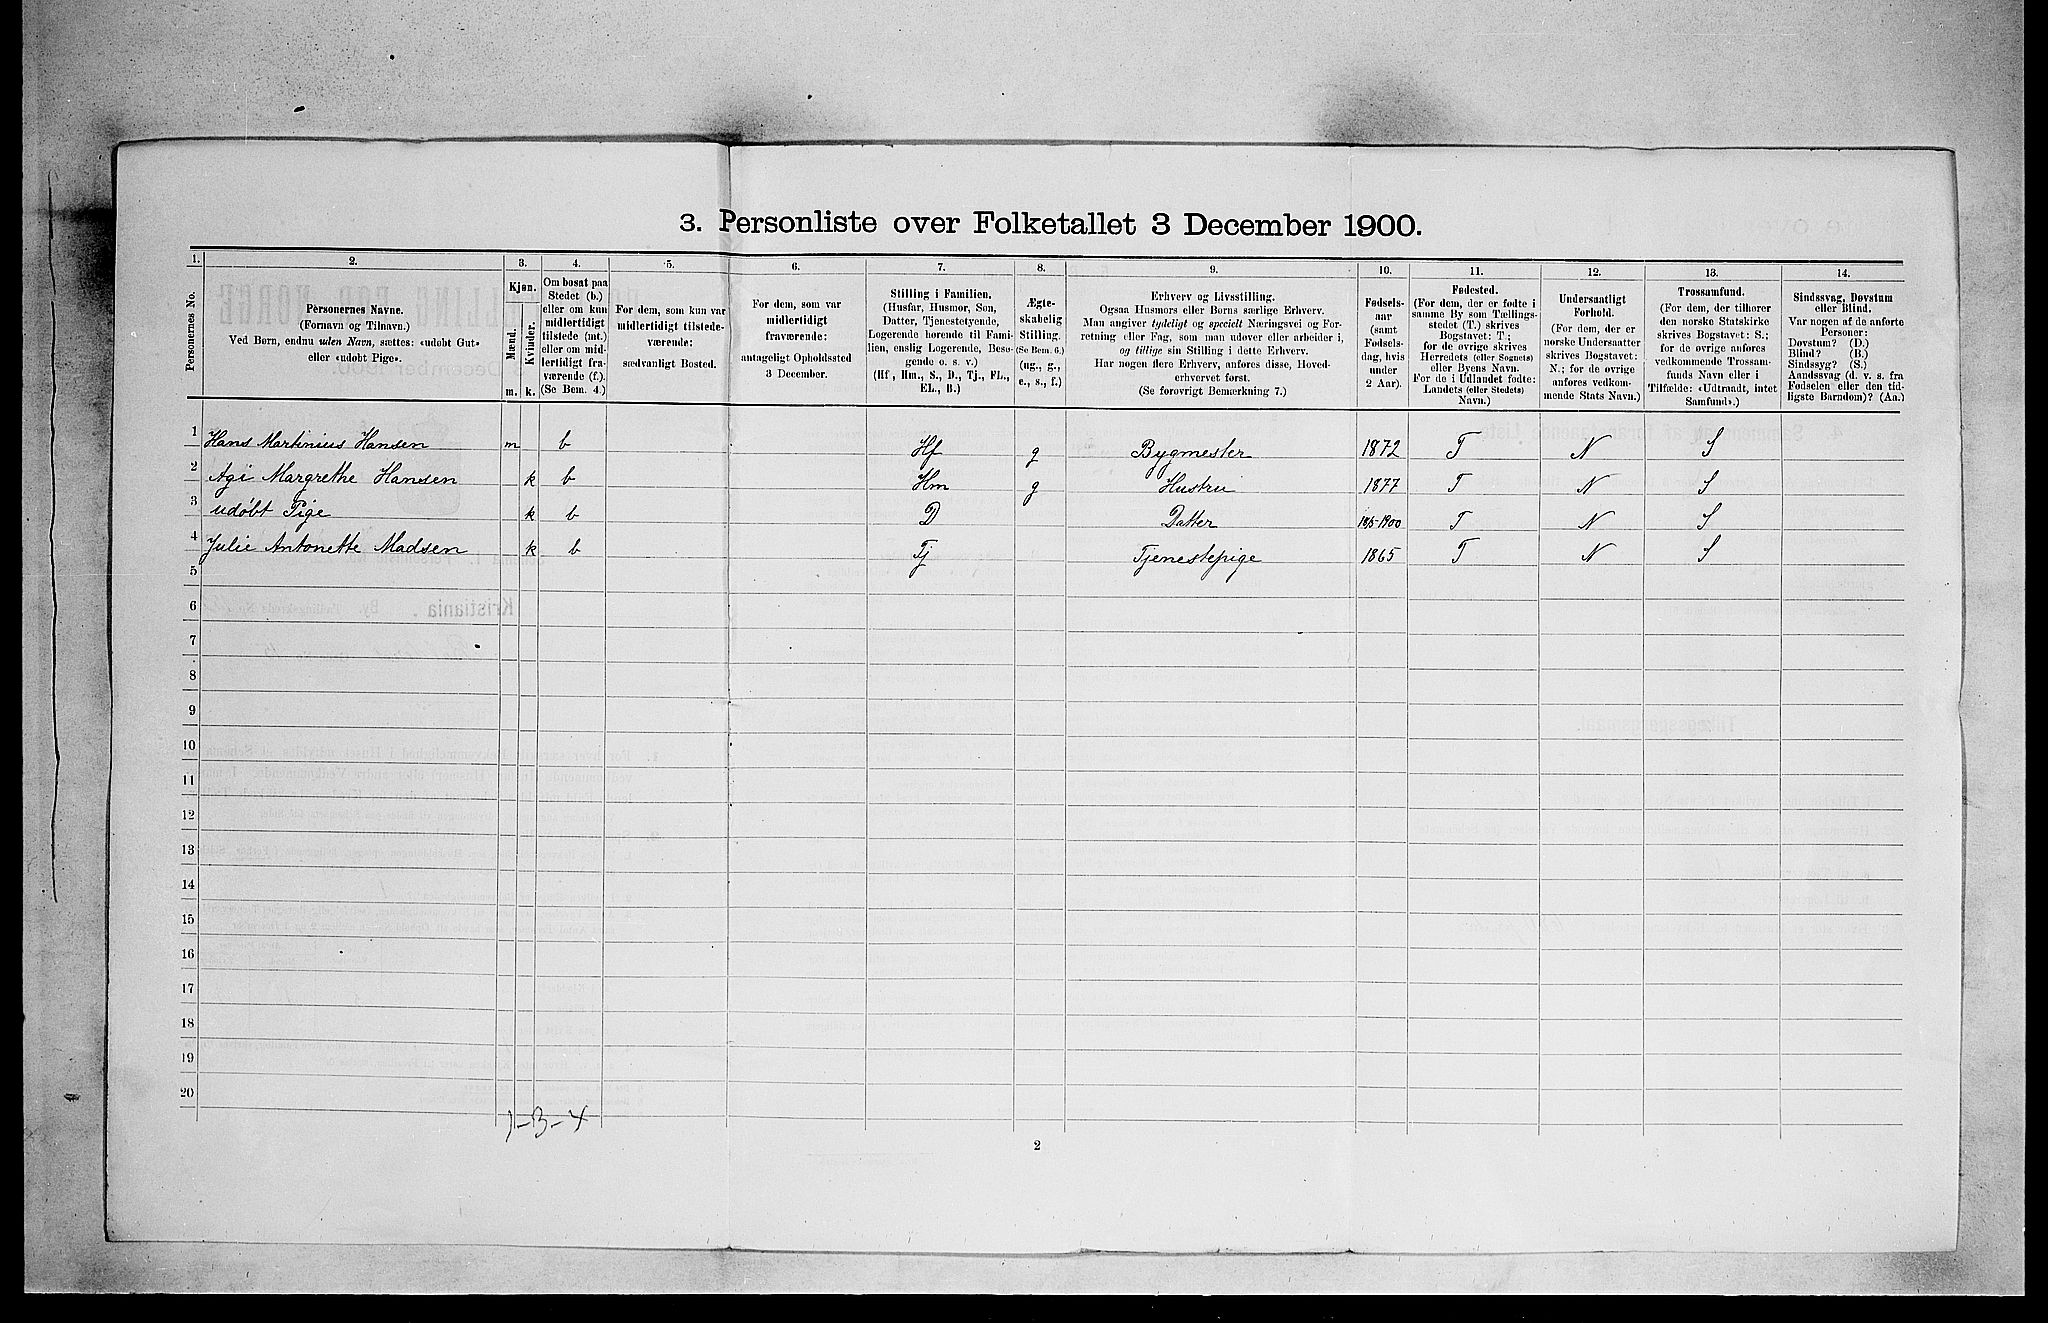 3. Personliste over Folketallet 3 December 1900.
1. 2. 3. 4. 5. 6. 7. 8. 9. 10. 11. 12. 13. 14.
Personernes No.
Personernes Navne.
(Fornavn og Tilnavn.)
Ved Børn, endnu uden Navn, sættes: «udøbt Gut»
eller «udøbt Pige».
Kjøn.
Mænd. Kvinder.
m. k.
Om bosat paa
Stedet (b.)
eller om kun
midlertidigt
tilstede (mt.)
eller om mid-
lertidigt fra-
værende (f.).
(Se Bem. 4.)
For dem, som kun var
midlertidigt tilstede-
værende:
sædvanligt Bosted.
For dem, som var
midlertidigt
fraværende:
antageligt Opholdssted
3 December.
Stilling i Familien.
(Husfar, Husmor, Søn,
Datter, Tjenestetyende,
Logerende hørende til Fami-
lien, enslig Logerende, Besø-
gende o. s. v.)
(Hf, Hm., S., D., Tj., FL.,
EL., B.)
Ægte-
skabelig
Stilling.
(Se Bem. 6.)
(ug., g.,
e., s., f.)
Erhverv og Livsstilling.
Ogsaa Husmors eller Børns særlige Erhverv.
Man angiver tydeligt og specielt Næringsvei og For-
retning eller Fag, som man udøver eller arbeider i,
og tillige sin Stilling i dette Erhverv.
Har nogen flere Erhverv, anføres disse, Hoved-
erhvervet først.
(Se forøvrigt Bemærkning 7.)
Fødsels-
aar
(samt
Fødsels-
dag, hvis
under
2 Aar).
Fødested.
(For dem, der er fødte i
samme By som Tællings-
stedet (T.) skrives
Bogstavet: T;
for de øvrige skrives
Herredets (eller Sognets)
eller Byens Navn.
For de i Udlandet fødte:
Landets (eller Stedets)
Navn.)
Undersaatligt
Forhold.
(For dem, der er
norske Undersaatter
skrives Bogstavet:
N.; for de øvrige
anføres vedkom-
mende Stats Navn.)
Trossamfund.
(For dem, der tilhører
den norske Statskirke
skrives Bogstavet: S.;
for de øvrige anføres
vedkommende Trossam-
funds Navn eller i
Tilfælde: «Udtraadt, intet
Samfund».)
Sindssvag, Døvstum
eller Blind.
Var nogen af de anførte
Personer:
Døvstum? (D.)
Blind? (B.)
Sindssyg? (S.)
Aandssvag (d. v. s. fra
Fødselen eller den tid-
ligste Barndom)? (Aa.)
1 Hans Martinius Hansen m b Hf g Bygmester 1872 T N S
2 Agi Margrethe Hansen k b Hm g Hustru 1877 T N S
3 udøbt Pige k b D Datter 1900 T N S
4 Julie Antonette Madsen k b Tj Tjenestepige 1865 T N S
5
6
7
8
9
10
11
12
13
14
15
16
17
18
19
20
1-3-4
2